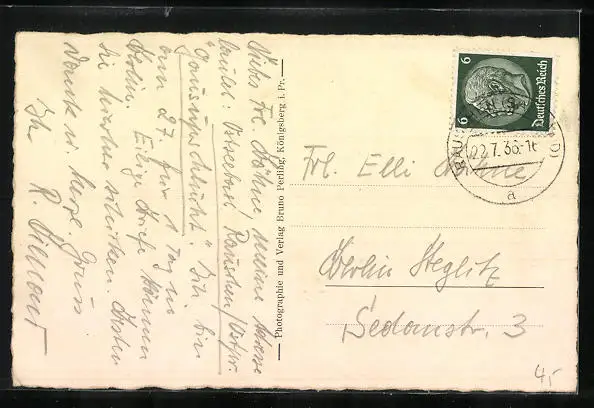 Liebes Frl. Böhne! Meine Adresse
lautet: Ostseebad Rauschen/Ostpr.
"Daus ins Schlucht." Ich bin
am 27. für 1 Tag in
Berlin. Eilige Briefe können
Sie hierher schicken. Besten
Dank u. herzl. Gruss
Ihr R.
Photographie und Verlag Bruno Perling, Königsberg i. Pr.
6 6
Deutsches Reich
22.7.36.
a
Frl. Elli Böhne
Berlin Steglitz
Sedanstr. 3
4,-